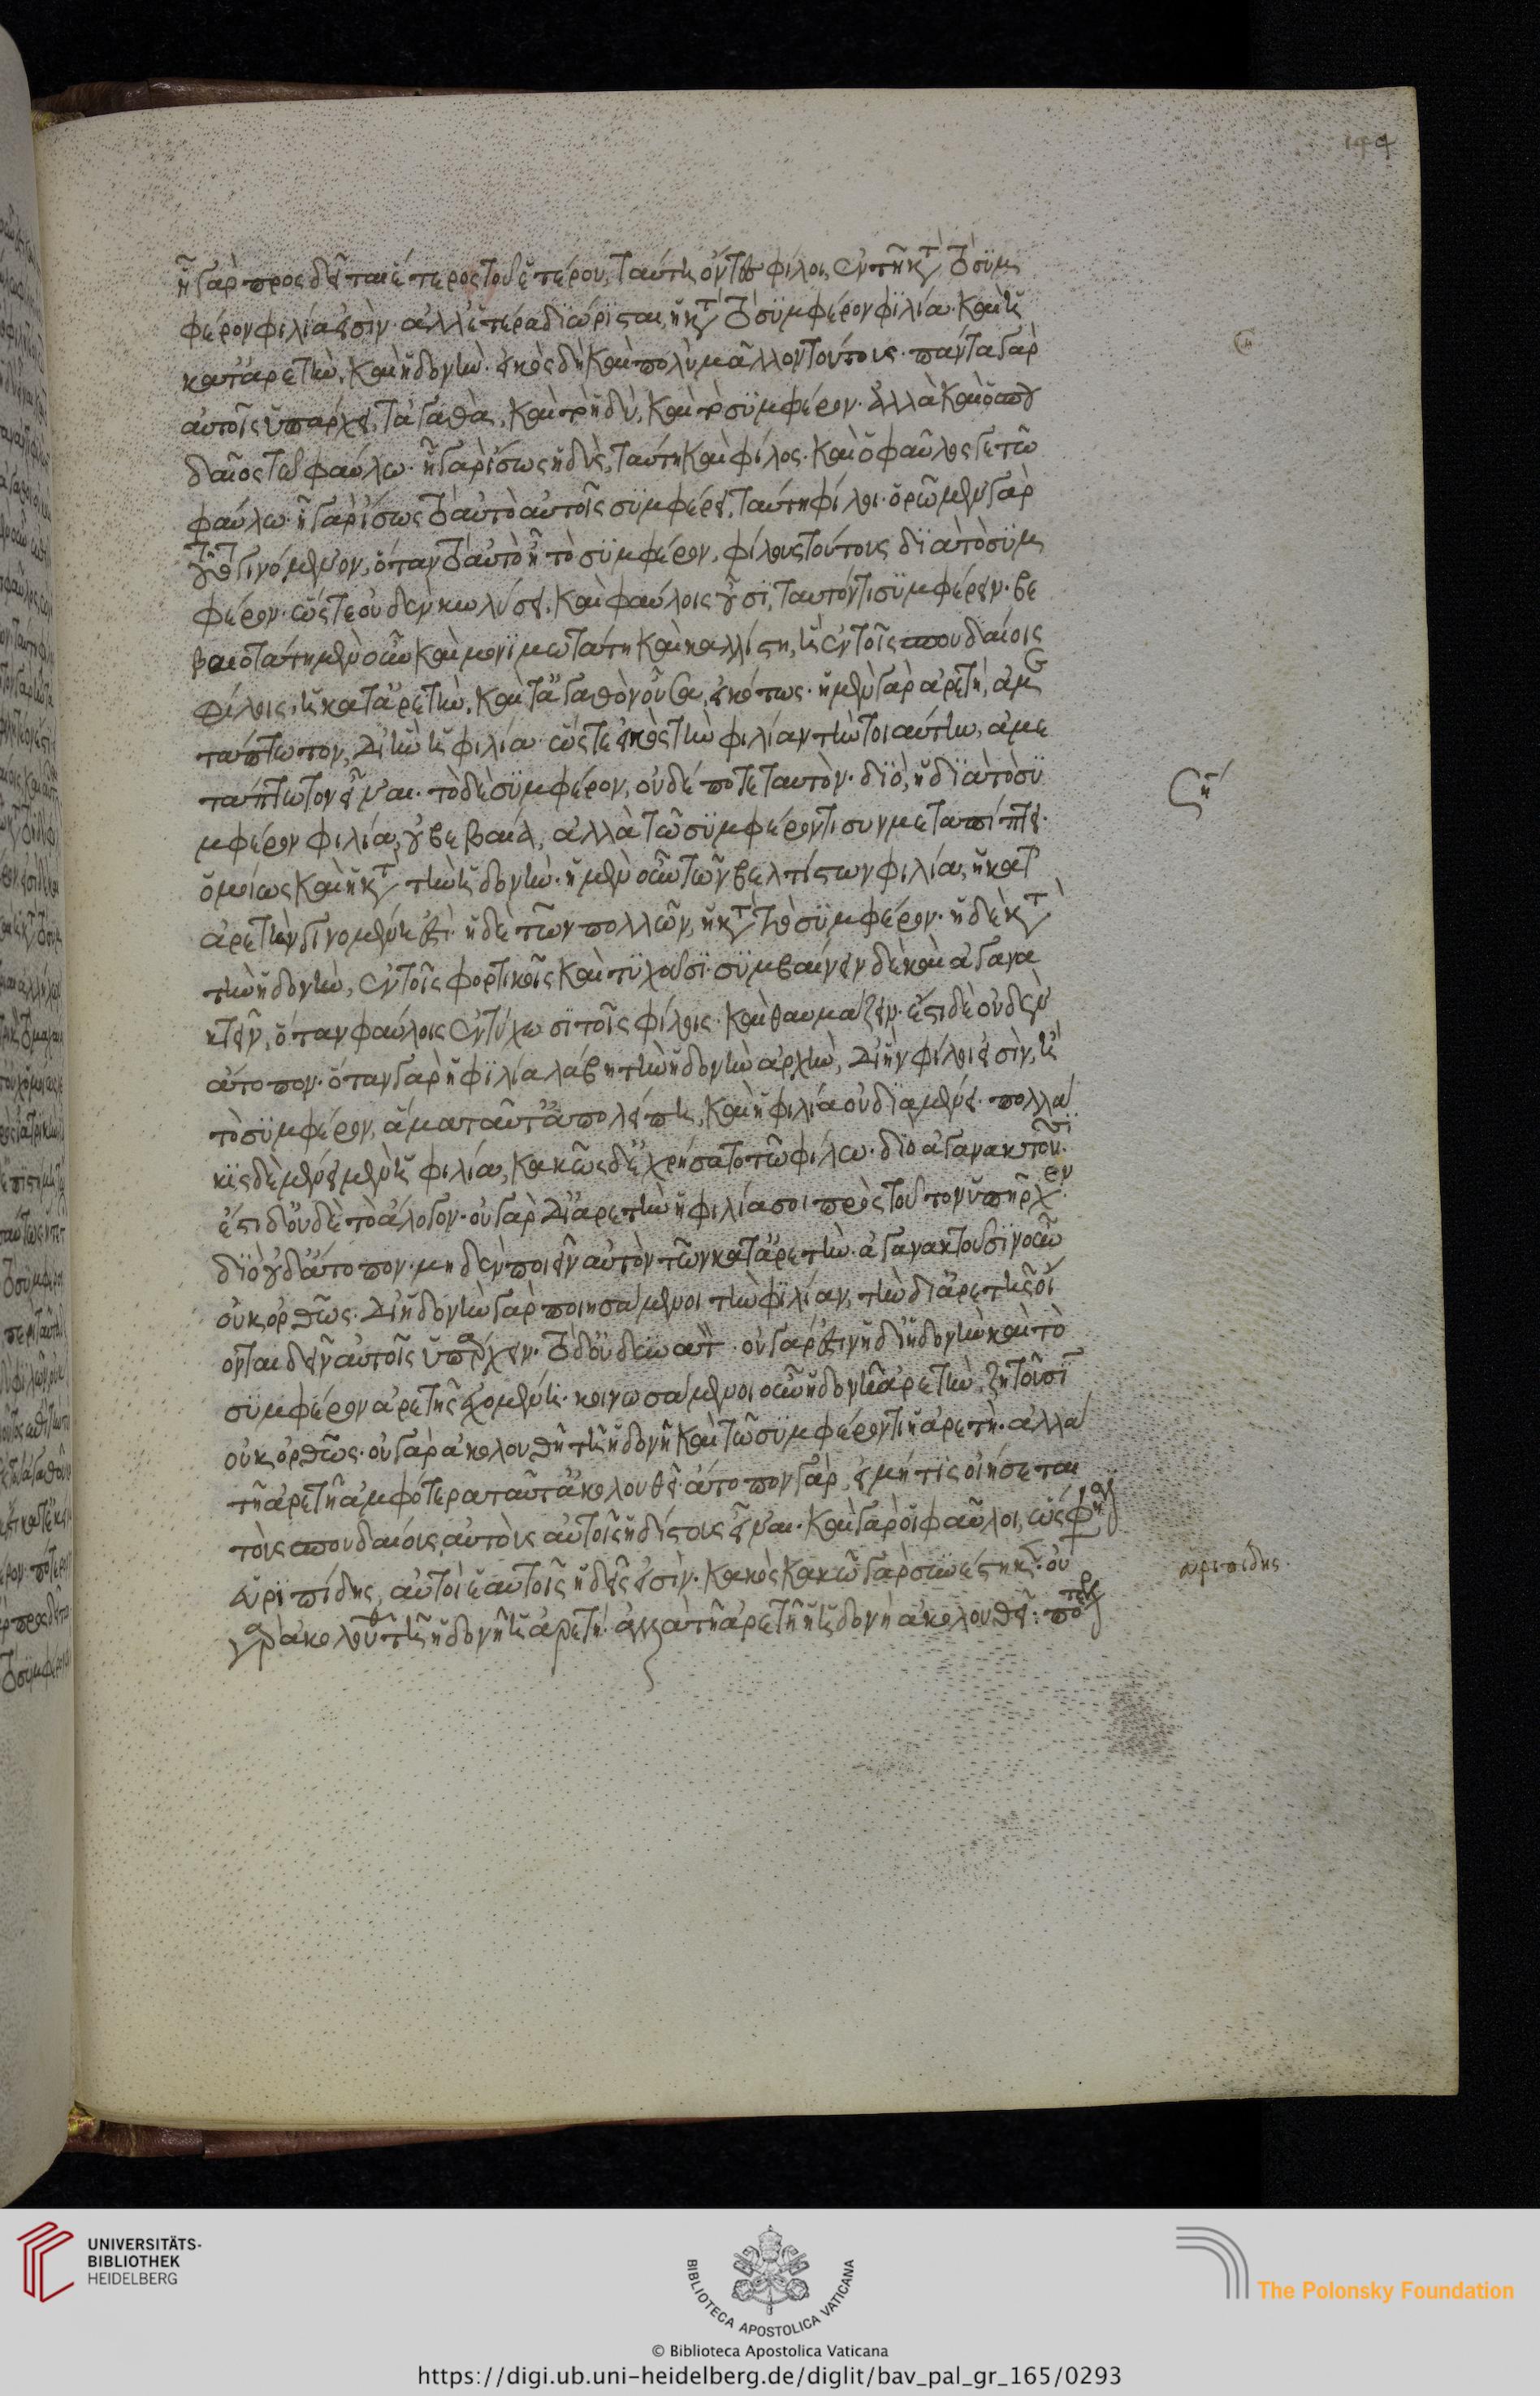 144
ἧ γὰρ προσδεῖται ἕτερος τοῦ ἑτέρου, ταύτη ὄντες φίλοι, ἐν τῆ κατὰ τὸ συμ
φέρον φιλία εἰσίν· ἀλλ' ἑτέρα διώρισται, ἡ κατὰ τὸ συμφέρον φιλία καὶ ἡ
κατ' ἀρετὴν, καὶ ἡδονήν· εἰκὸς δὴ καὶ πολὺ μᾶλλον τούτοις· πάντα γὰρ
αὐτοῖς ὑπάρχει, τἀγαθὰ, καὶ τὸ ἡδύ, καὶ τὸ συμφέρον· ἀλλὰ καὶ ὁ σπου
δαῖος τῶ φαύλω· ἧ γὰρ ἴσως ἡδὺς, ταύτη καὶ φίλος· καὶ ὁ φαῦλος γε τῶ
φαύλω· ἧ γὰρ ἴσως τὸ αὐτὸ αὐτοῖς συμφέρει, ταύτη φίλοι· ὁρῶμεν γὰρ
τοῦτο γινόμενον, ὅταν τὸ αὐτὸ ἦ τὸ συμφέρον, φίλους τούτους διὰ τὸ συμ
φέρον· ὥστε οὐδὲν κωλύσει, καὶ φαύλοις οὖσι, ταυτόν τι συμφέρειν· βε
βαιοτάτη μὲν οὖν καὶ μονιμωτάτη καὶ καλλίστη, ἡ ἐν τοῖς σπουδαίοις
φίλοις, ἡ κατ' ἀρετὴν, καὶ τἀγαθὸν οὖσα, εἰκότως· ἡ μὲν γὰρ ἀρετὴ, ἀμε
τάπτωτον, δι' ἣν ἡ φιλία· ὥστε εἰκὸς τὴν φιλίαν τὴν τοιαύτην, ἀμε
τάπτωτον εἶναι· τὸ δὲ συμφέρον, οὐδέποτε ταυτόν· διὸ, ἡ διὰ τὸ συ
μφέρον φιλία, οὐ βεβαία, ἀλλὰ τῶ συμφέροντι συνμεταπίπτει·
ὁμοίως καὶ ἡ κατὰ τὴν ἡδονήν· ἡ μὲν οὖν τῶν βελτίστων φιλία, ἡ κατ'
ἀρετὴν γινομένη ἐστί· ἡ δὲ τῶν πολλῶν, ἡ κατὰ τὸ συμφέρον· ἡ δὲ κατὰ
τὴν ἡδονὴν, ἐν τοῖς φορτικοῖς καὶ τυχοῦσι· συμβαίνειν δὲ καὶ ἀγανα
κτεῖν, ὅταν φαύλοις ἐντύχωσι τοῖς φίλοις· καὶ θαυμάζειν· ἔστι δὲ οὐδὲν
ἄτοπον· ὅταν γὰρ ἡ φιλία λάβη τὴν ἡδονὴν ἀρχὴν, δι' ἣν φίλοι εἰσὶν, ἢ
τὸ συμφέρον, ἅμα ταῦτ' ἀπολείπη, καὶ ἡ φιλία οὐ διαμένει· πολλά
κις δὲ μένει μὲν ἡ φιλία, κακῶς δ' ἐχρήσατο τῶ φίλω· διὸ ἀγανακτοῦσι·
ἔστι δ' οὐδὲ τὸ ἄλογον· οὐ γὰρ δι' ἀρετὴν ἡ φιλία σοι πρὸς τοῦτον ὑπῆρχεν·
διὸ οὐδ' ἄτοπον· μηδὲν ποιεῖν αὐτὸν τῶν κατ' ἀρετὴν· ἀγανακτοῦσιν οὖν
οὐκ ὀρθῶς· δι' ἡδονὴν γὰρ ποιησάμενοι τὴν φιλίαν, τὴν δι' ἀρετῆς οἴ
ονται δεῖν αὐτοῖς ὑπάρχειν· τὸ δ' οὐ δυνατόν· οὐ γάρ ἐστιν ἡ δι' ἡδονὴν καὶ τὸ
συμφέρον ἀρετῆς ἐχομένη· κοινωσάμενοι οὖν ἡδονῆ ἀρετὴν, ζητοῦσι
οὐκ ὀρθῶς· οὐ γὰρ ἀκολουθῆ τῆ ἡδονῆ καὶ τῶ συμφέροντι ἡ ἀρετὴ· ἀλλὰ
τῆ ἀρετῆ ἀμφότερα ταῦτ' ἀκολουθεῖ· ἄτοπον γὰρ, εἰ μή τις οἰήσεται
τοὺς σπουδαίους αὐτοὺς αὑτοῖς ἡδίστους εἶναι· καὶ γὰρ οἱ φαῦλοι, ὥς φησιν
εὐριπίδης, αὐτοὶ ἑαυτοῖς ἡδεῖς εἰσίν· κακὸς κακῶ γὰρ συντέτηκε· οὐ
γὰρ ἀκολουθεῖ τῆ ἡδονῆ ἡ ἀρετή· ἀλλὰ τῆ ἀρετῆ ἡ ἡδονὴ ἀκολουθεῖ: πότερον
ση
εὐριπίδης·
UNIVERSITÄTS-
BIBLIOTHEK
HEIDELBERG
BIBLIOTECA APOSTOLICA VATICANA
The Polonsky Foundation
© Biblioteca Apostolica Vaticana
https://digi.ub.uni-heidelberg.de/diglit/bav_pal_gr_165/0293